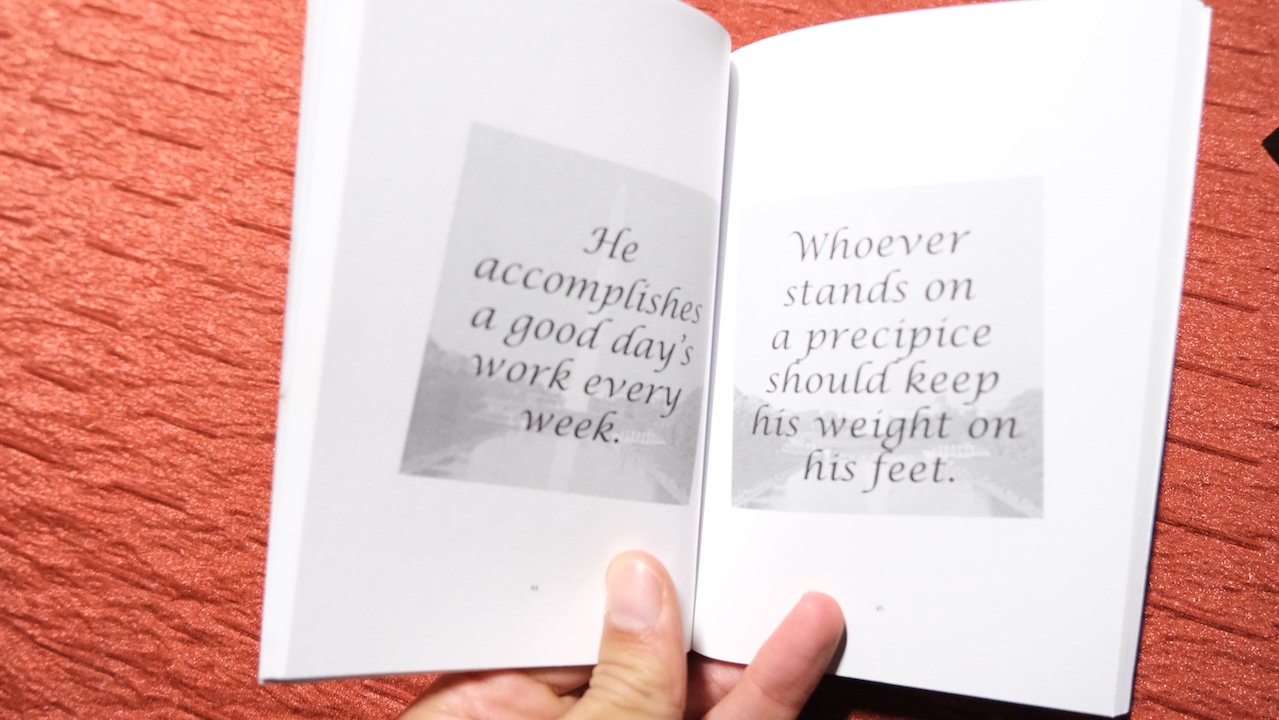 He
accomplishes
a good day's
work every
week.
Whoever
stands on
a precipice
should keep
his weight on
his feet.